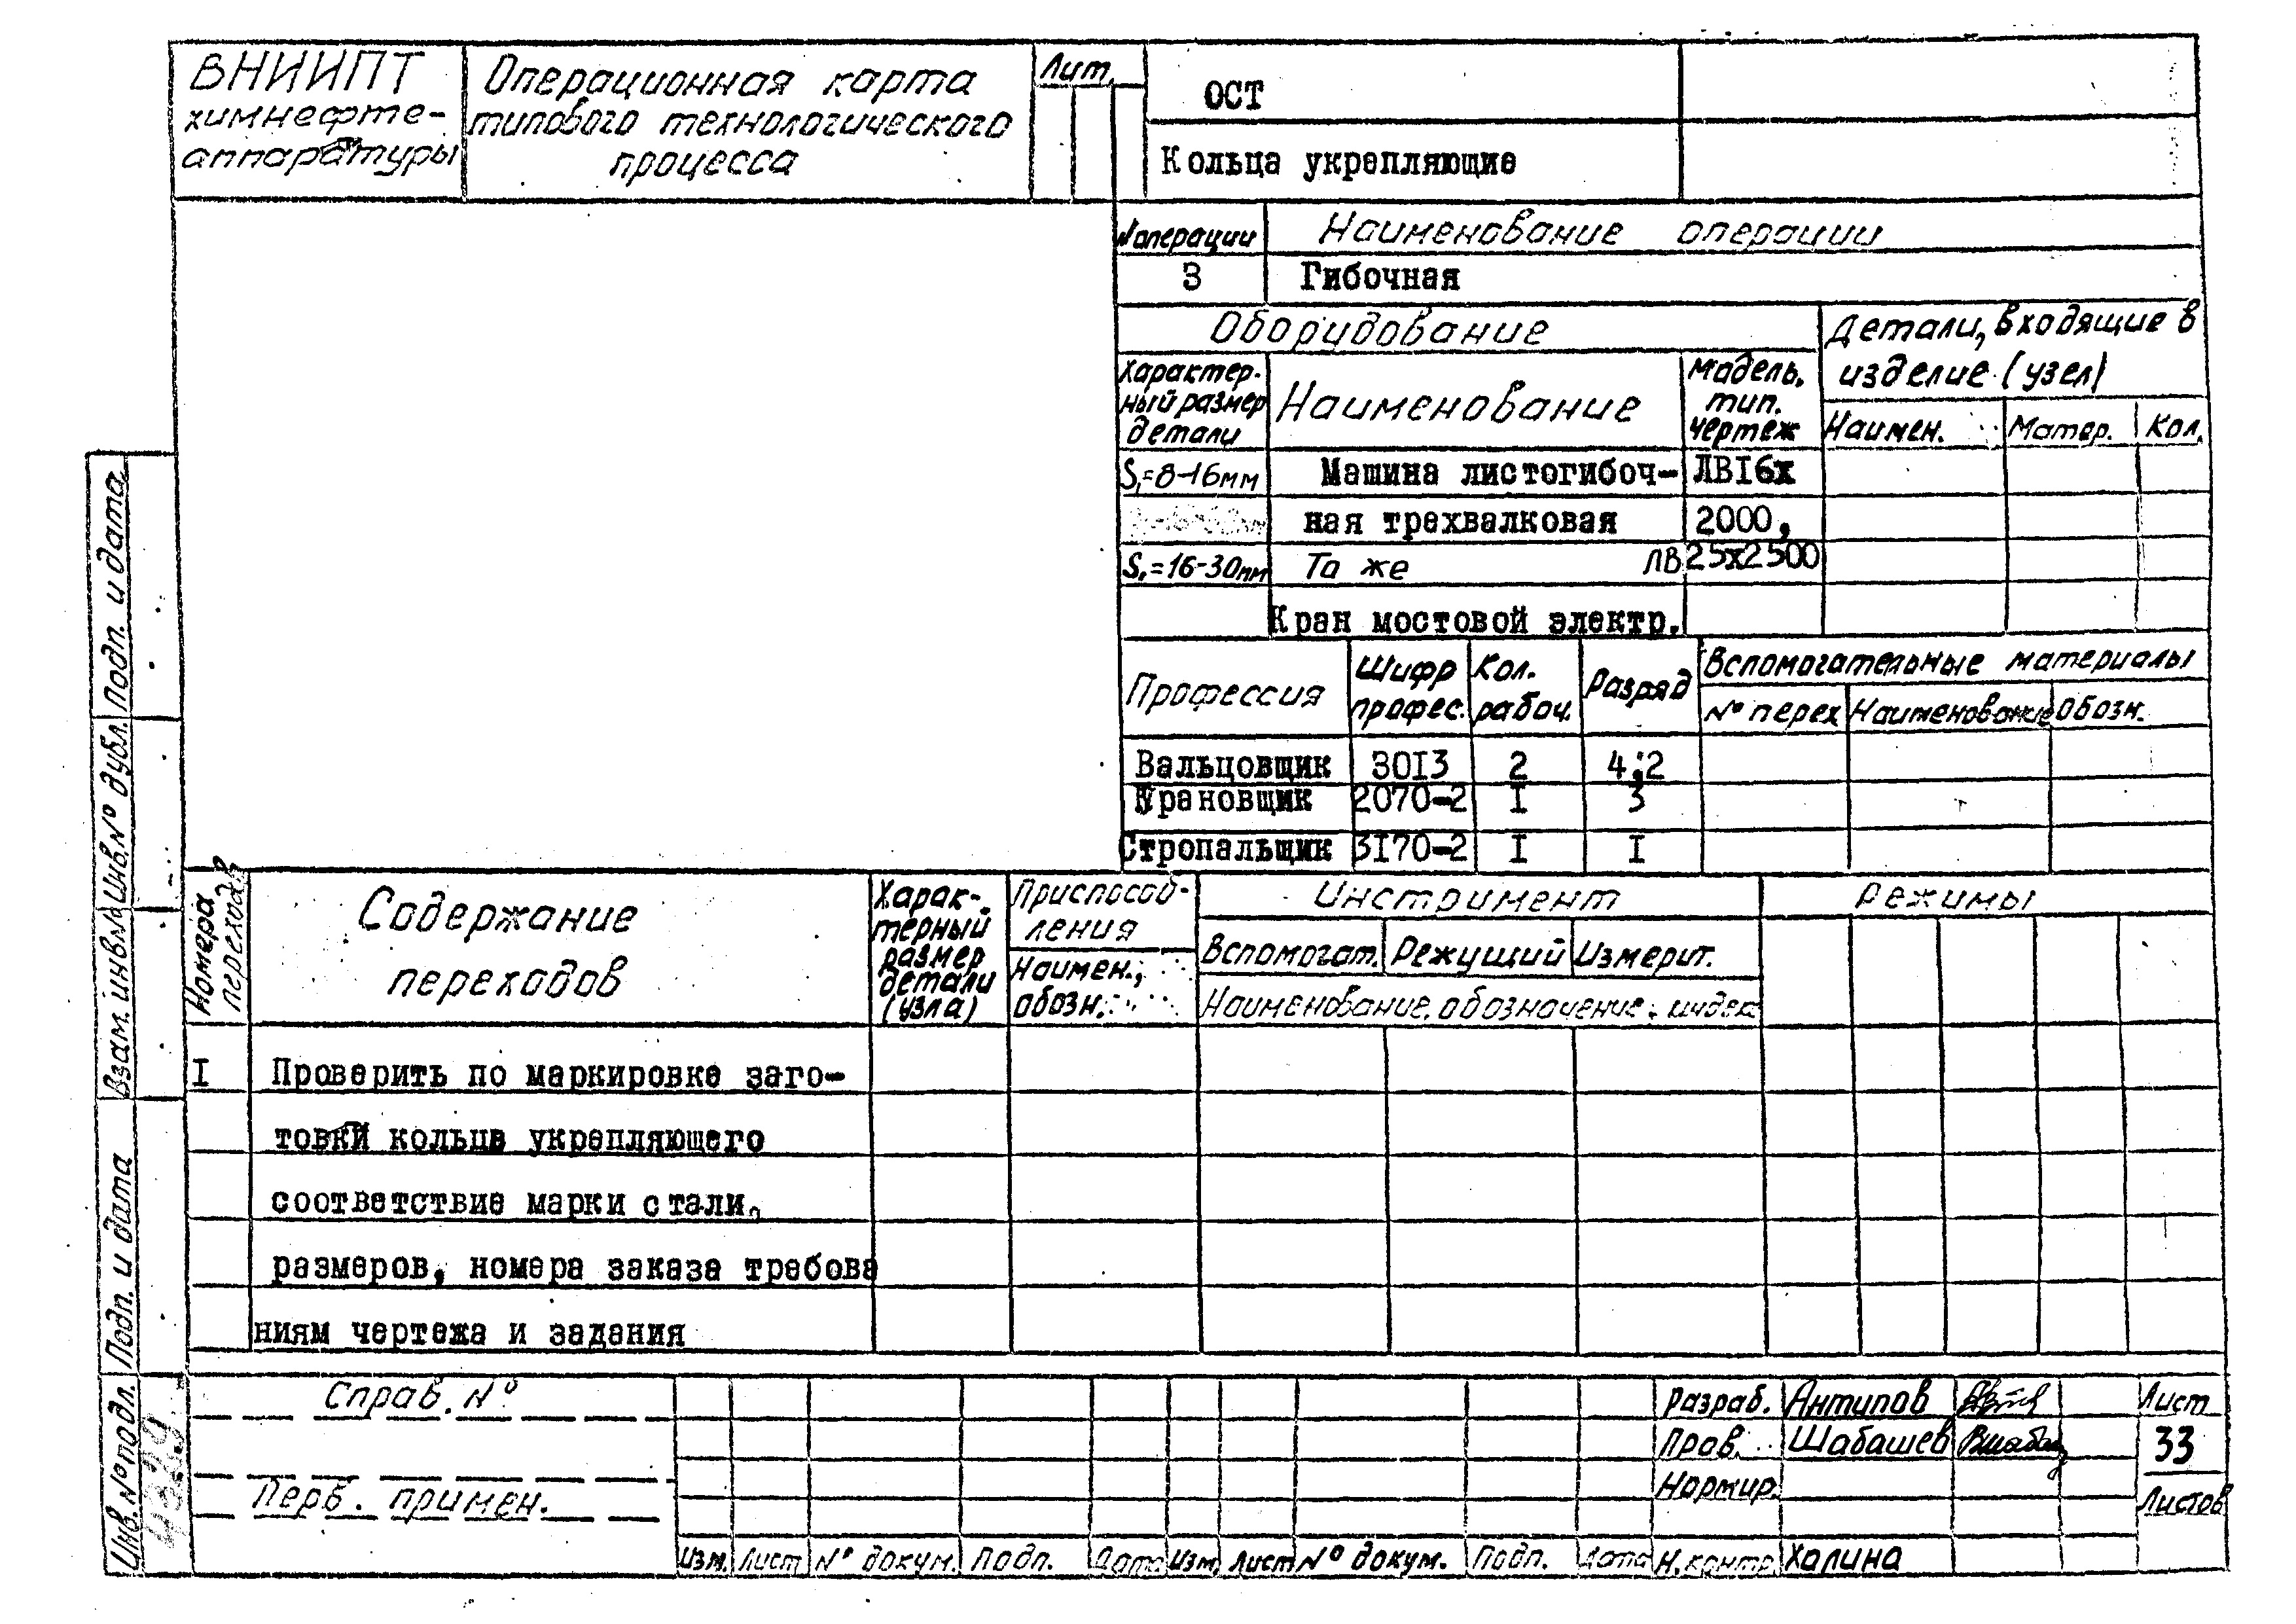 ВНИИПТ
химнефте-
аппаратуры
Операционная карта
типового технологического
процесса
Лит.
ОСТ
Кольца укрепляющие
№ операции
Наименование операции
3
Гибочная
Оборудование
Детали, входящие в
изделие (узел)
Характер-
ный размер
детали
Наименование
Модель,
тип.
чертеж
Наимен.
Матер.
Кол.
S₁=8-16мм
Машина листогибоч-
ЛВI6х
ная трехвалковая
2000,
S₁=16-30мм
Та же
ЛВ 25х2500
Кран мостовой электр.
Профессия
Шифр
профес.
Кол.
рабоч.
Разряд
Вспомогательные материалы
№ перех
Наименование
Обозн.
Вальцовщик 30I3 2 4;2
Крановщик 2070-2 I 3
Стропальщик 3I70-2 I I
Номера
переходов
Содержание
переходов
Харак-
терный
размер
детали
(узла)
Приспособ-
ления
Наимен.,
обозн.
Инструмент
Вспомогат.
Режущий
Измерит.
Наименование, обозначение, индекс
Режимы
I Проверить по маркировке заго-
товки кольца укрепляющего
соответствие марки стали,
размеров, номера заказа требова
ниям чертежа и задания
Справ. №
Перв. примен.
Изм. Лист № докум. Подп. Дата Изм. Лист № докум. Подп. Дата
Разраб. Антипов
Пров. Шабашев
Нормир.
Н.контр. Халина
Лист
33
Листов
Подп. и дата
Инв.№ дубл.
Взам. инв.№
Подп. и дата
Инв.№ подл.